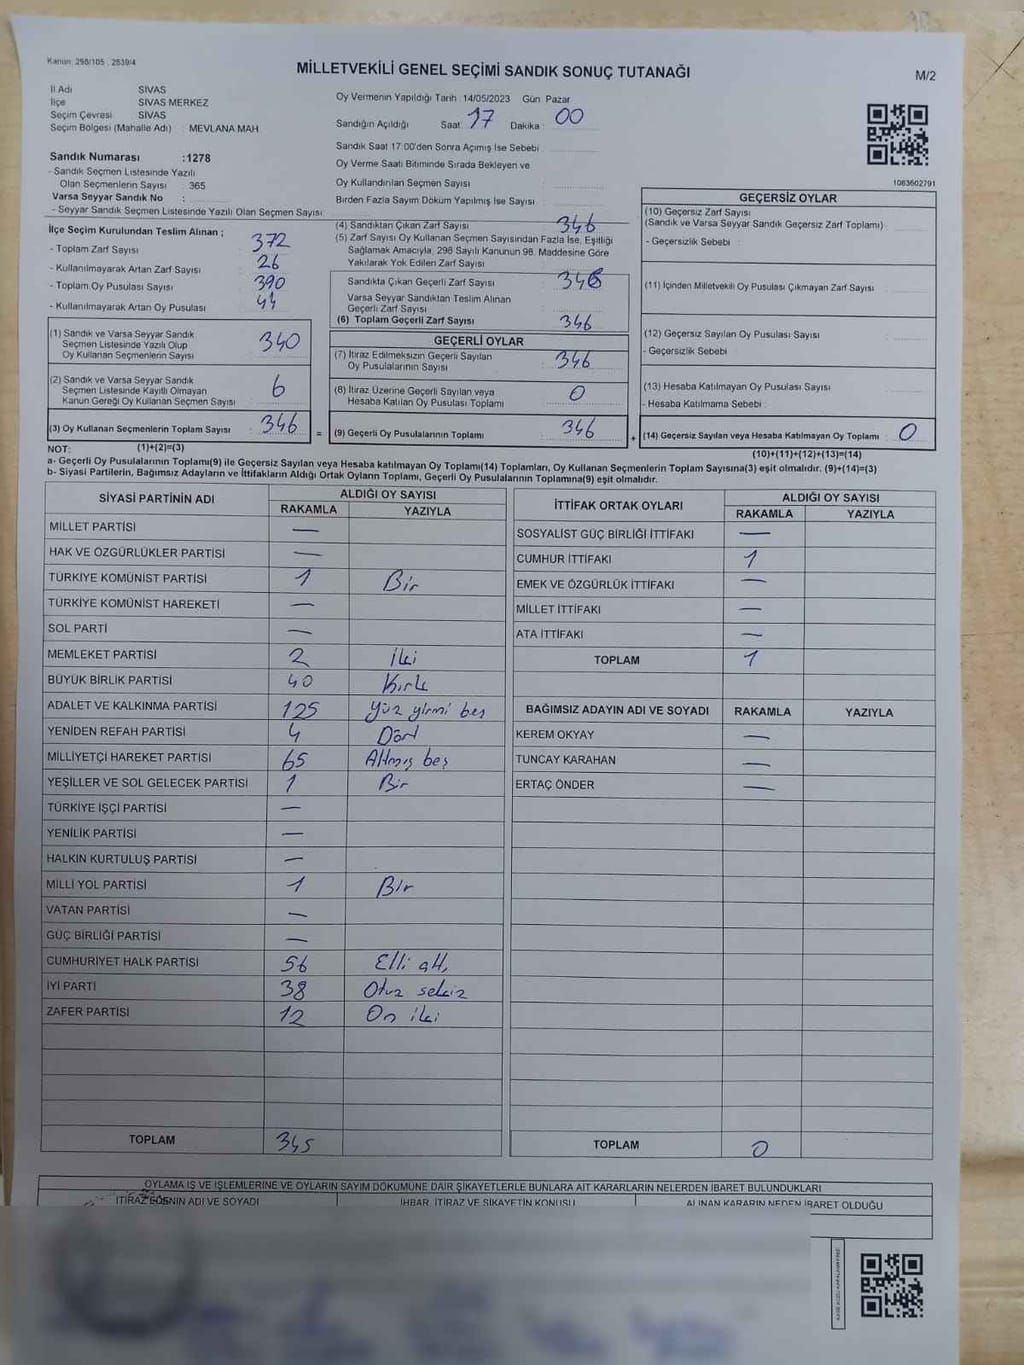 Kanun: 298/105 , 2839/4
MİLLETVEKİLİ GENEL SEÇİMİ SANDIK SONUÇ TUTANAĞI
M/2
İl Adı SİVAS
İlçe SİVAS MERKEZ
Seçim Çevresi SİVAS
Seçim Bölgesi (Mahalle Adı) : MEVLANA MAH
Oy Vermenin Yapıldığı Tarih 14/05/2023 Gün: Pazar
Sandığın Açıldığı Saat: 17 Dakika: 00
Sandık Saat 17:00'den Sonra Açımış İse Sebebi
Oy Verme Saati Bitiminde Sırada Bekleyen ve
Oy Kullandırılan Seçmen Sayısı
Birden Fazla Sayım Döküm Yapılmış İse Sayısı
1063602791
Sandık Numarası :1278
- Sandık Seçmen Listesinde Yazılı
Olan Seçmenlerin Sayısı : 365
Varsa Seyyar Sandık No :
- Seyyar Sandık Seçmen Listesinde Yazılı Olan Seçmen Sayısı
İlçe Seçim Kurulundan Teslim Alınan ;
- Toplam Zarf Sayısı 372
- Kullanılmayarak Artan Zarf Sayısı 26
- Toplam Oy Pusulası Sayısı 390
- Kullanılmayarak Artan Oy Pusulası 44
(1) Sandık ve Varsa Seyyar Sandık
Seçmen Listesinde Yazılı Olup
Oy Kullanan Seçmenlerin Sayısı 340
(2) Sandık ve Varsa Seyyar Sandık
Seçmen Listesinde Kayıtlı Olmayan
Kanun Gereği Oy Kullanan Seçmen Sayısı 6
(3) Oy Kullanan Seçmenlerin Toplam Sayısı : 346 =
(4) Sandıktan Çıkan Zarf Sayısı 346
(5) Zarf Sayısı Oy Kullanan Seçmen Sayısından Fazla İse, Eşitliği
Sağlamak Amacıyla, 298 Sayılı Kanunun 98. Maddesine Göre
Yakılarak Yok Edilen Zarf Sayısı
Sandıkta Çıkan Geçerli Zarf Sayısı 346
Varsa Seyyar Sandıktan Teslim Alınan
Geçerli Zarf Sayısı
(6) Toplam Geçerli Zarf Sayısı 346
GEÇERLİ OYLAR
(7) İtiraz Edilmeksizin Geçerli Sayılan
Oy Pusulalarının Sayısı 346
(8) İtiraz Üzerine Geçerli Sayılan veya
Hesaba Katılan Oy Pusulası Toplamı 0
(9) Geçerli Oy Pusulalarının Toplamı : 346 +
GEÇERSİZ OYLAR
(10) Geçersiz Zarf Sayısı
(Sandık ve Varsa Seyyar Sandık Geçersiz Zarf Toplamı)
- Geçersizlik Sebebi :
(11) İçinden Milletvekili Oy Pusulası Çıkmayan Zarf Sayısı
(12) Geçersiz Sayılan Oy Pusulası Sayısı
- Geçersizlik Sebebi
(13) Hesaba Katılmayan Oy Pusulası Sayısı
- Hesaba Katılmama Sebebi :
(14) Geçersiz Sayılan veya Hesaba Katılmayan Oy Toplamı : 0
NOT: (1)+(2)=(3)
(10)+(11)+(12)+(13)=(14)
a- Geçerli Oy Pusulalarının Toplamı(9) ile Geçersiz Sayılan veya Hesaba katılmayan Oy Toplamı(14) Toplamları, Oy Kullanan Seçmenlerin Toplam Sayısına(3) eşit olmalıdır. (9)+(14)=(3)
b- Siyasi Partilerin, Bağımsız Adayların ve İttifakların Aldığı Ortak Oyların Toplamı, Geçerli Oy Pusulalarının Toplamına(9) eşit olmalıdır.
SİYASİ PARTİNİN ADI
ALDIĞI OY SAYISI
RAKAMLA YAZIYLA
MİLLET PARTİSİ —
HAK VE ÖZGÜRLÜKLER PARTİSİ —
TÜRKİYE KOMÜNİST PARTİSİ 1 Bir
TÜRKİYE KOMÜNİST HAREKETİ —
SOL PARTİ —
MEMLEKET PARTİSİ 2 İki
BÜYÜK BİRLİK PARTİSİ 40 Kırk
ADALET VE KALKINMA PARTİSİ 125 Yüz yirmi beş
YENİDEN REFAH PARTİSİ 4 Dört
MİLLİYETÇİ HAREKET PARTİSİ 65 Altmış beş
YEŞİLLER VE SOL GELECEK PARTİSİ 1 Bir
TÜRKİYE İŞÇİ PARTİSİ —
YENİLİK PARTİSİ —
HALKIN KURTULUŞ PARTİSİ —
MİLLİ YOL PARTİSİ 1 Bir
VATAN PARTİSİ —
GÜÇ BİRLİĞİ PARTİSİ —
CUMHURİYET HALK PARTİSİ 56 Elli altı
İYİ PARTİ 38 Otuz sekiz
ZAFER PARTİSİ 12 On iki
TOPLAM 345
İTTİFAK ORTAK OYLARI
ALDIĞI OY SAYISI
RAKAMLA YAZIYLA
SOSYALİST GÜÇ BİRLİĞİ İTTİFAKI —
CUMHUR İTTİFAKI 1
EMEK VE ÖZGÜRLÜK İTTİFAKI —
MİLLET İTTİFAKI —
ATA İTTİFAKI —
TOPLAM 1
BAĞIMSIZ ADAYIN ADI VE SOYADI RAKAMLA YAZIYLA
KEREM OKYAY —
TUNCAY KARAHAN —
ERTAÇ ÖNDER —
TOPLAM 0
OYLAMA İŞ VE İŞLEMLERİNE VE OYLARIN SAYIM DÖKÜMÜNE DAİR ŞİKAYETLERLE BUNLARA AİT KARARLARIN NELERDEN İBARET BULUNDUKLARI
İTİRAZ EDENİN ADI VE SOYADI İHBAR, İTİRAZ VE ŞİKAYETİN KONUSU ALINAN KARARIN NEDEN İBARET OLDUĞU